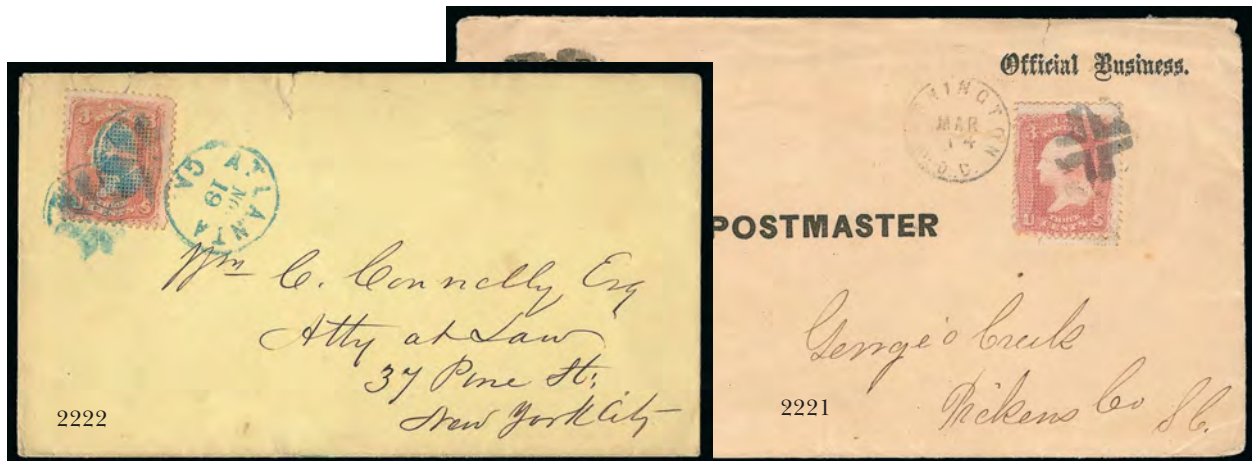 ATLANTA GA
NO
19
Wm C. Connelly Esq
Atty at Law
37 Pine St;
New York City
2222
Official Business.
MAR
D.C.
3
U THREE CENTS S
POSTMASTER
George's Creek
Pickens Co S.C.
2221